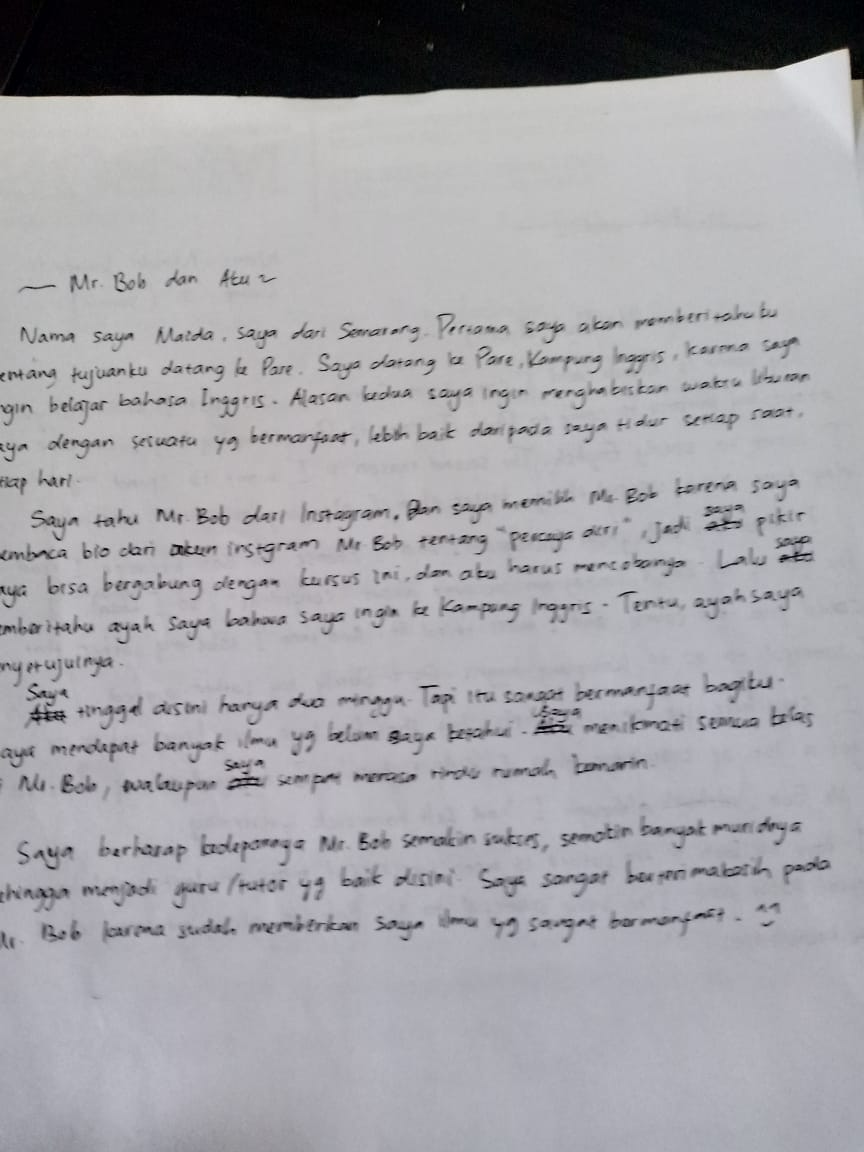 Mr. Bob dan Aku
Nama saya Maida, saya dari Semarang. Pertama saya akan memberitahuku
entang tujuanku datang ke Pare. Saya datang ke Pare, Kampung Inggris, karena saya
ngin belajar bahasa Inggris. Alasan kedua saya ingin menghabiskan waktu liburan
aya dengan sesuatu yg bermanfaat, lebih baik daripada saya tidur setiap saat,
tiap hari.
Saya tahu Mr. Bob dari Instagram. Dan saya memilih Mr. Bob karena saya
embaca bio dari akun instgram Mr Bob tentang "percaya diri", jadi saya pikir
aya bisa bergabung dengan kursus ini, dan aku harus mencobanya. Lalu saya
mberitahu ayah saya bahwa saya ingin ke Kampung Inggris. Tentu, ayah saya
nyetujuinya.
Saya tinggal disini hanya dua minggu. Tapi itu sangat bermanfaat bagiku.
aya mendapat banyak ilmu yg belum saya ketahui. Saya menikmati semua kelas
i Mr. Bob, walaupun saya sempat merasa rindu rumah kemarin.
Saya berharap kedepannya Mr. Bob semakin sukses, semakin banyak muridnya
ehingga menjadi guru/tutor yg baik disini. Saya sangat berterimakasih pada
Mr. Bob karena sudah memberikan saya ilmu yg sangat bermanfaat.